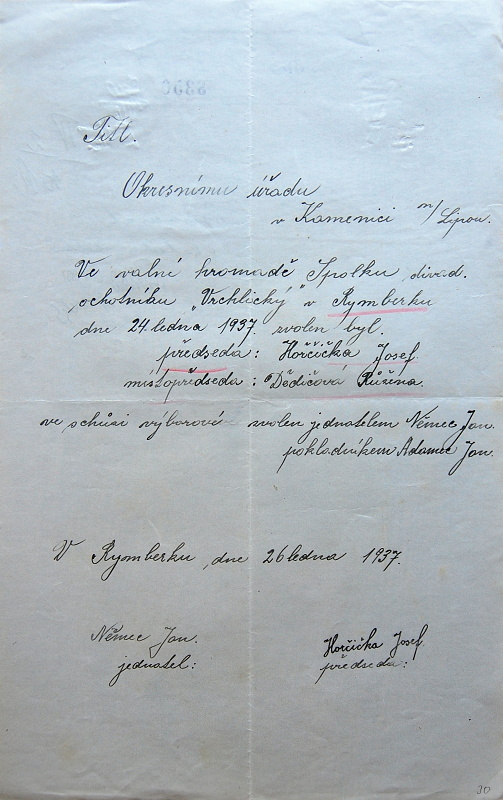 Titl.
Okresnímu úřadu
v Kamenici n/Lipou.
Ve valní hromadě Spolku divad.
ochotníku „Vrchlický" v Rymberku
dne 24 ledna 1937. zvolen byl.
předseda: Horčička Josef
místopředseda: Dědičová Růžena.
ve schůsi výborové zvolen jednatelem Němec Jan.
pokladníkem Adamec Jan.
V Rymberku, dne 26 ledna 1937.
Němec Jan.
jednatel:
Horčička Josef
předseda:
30